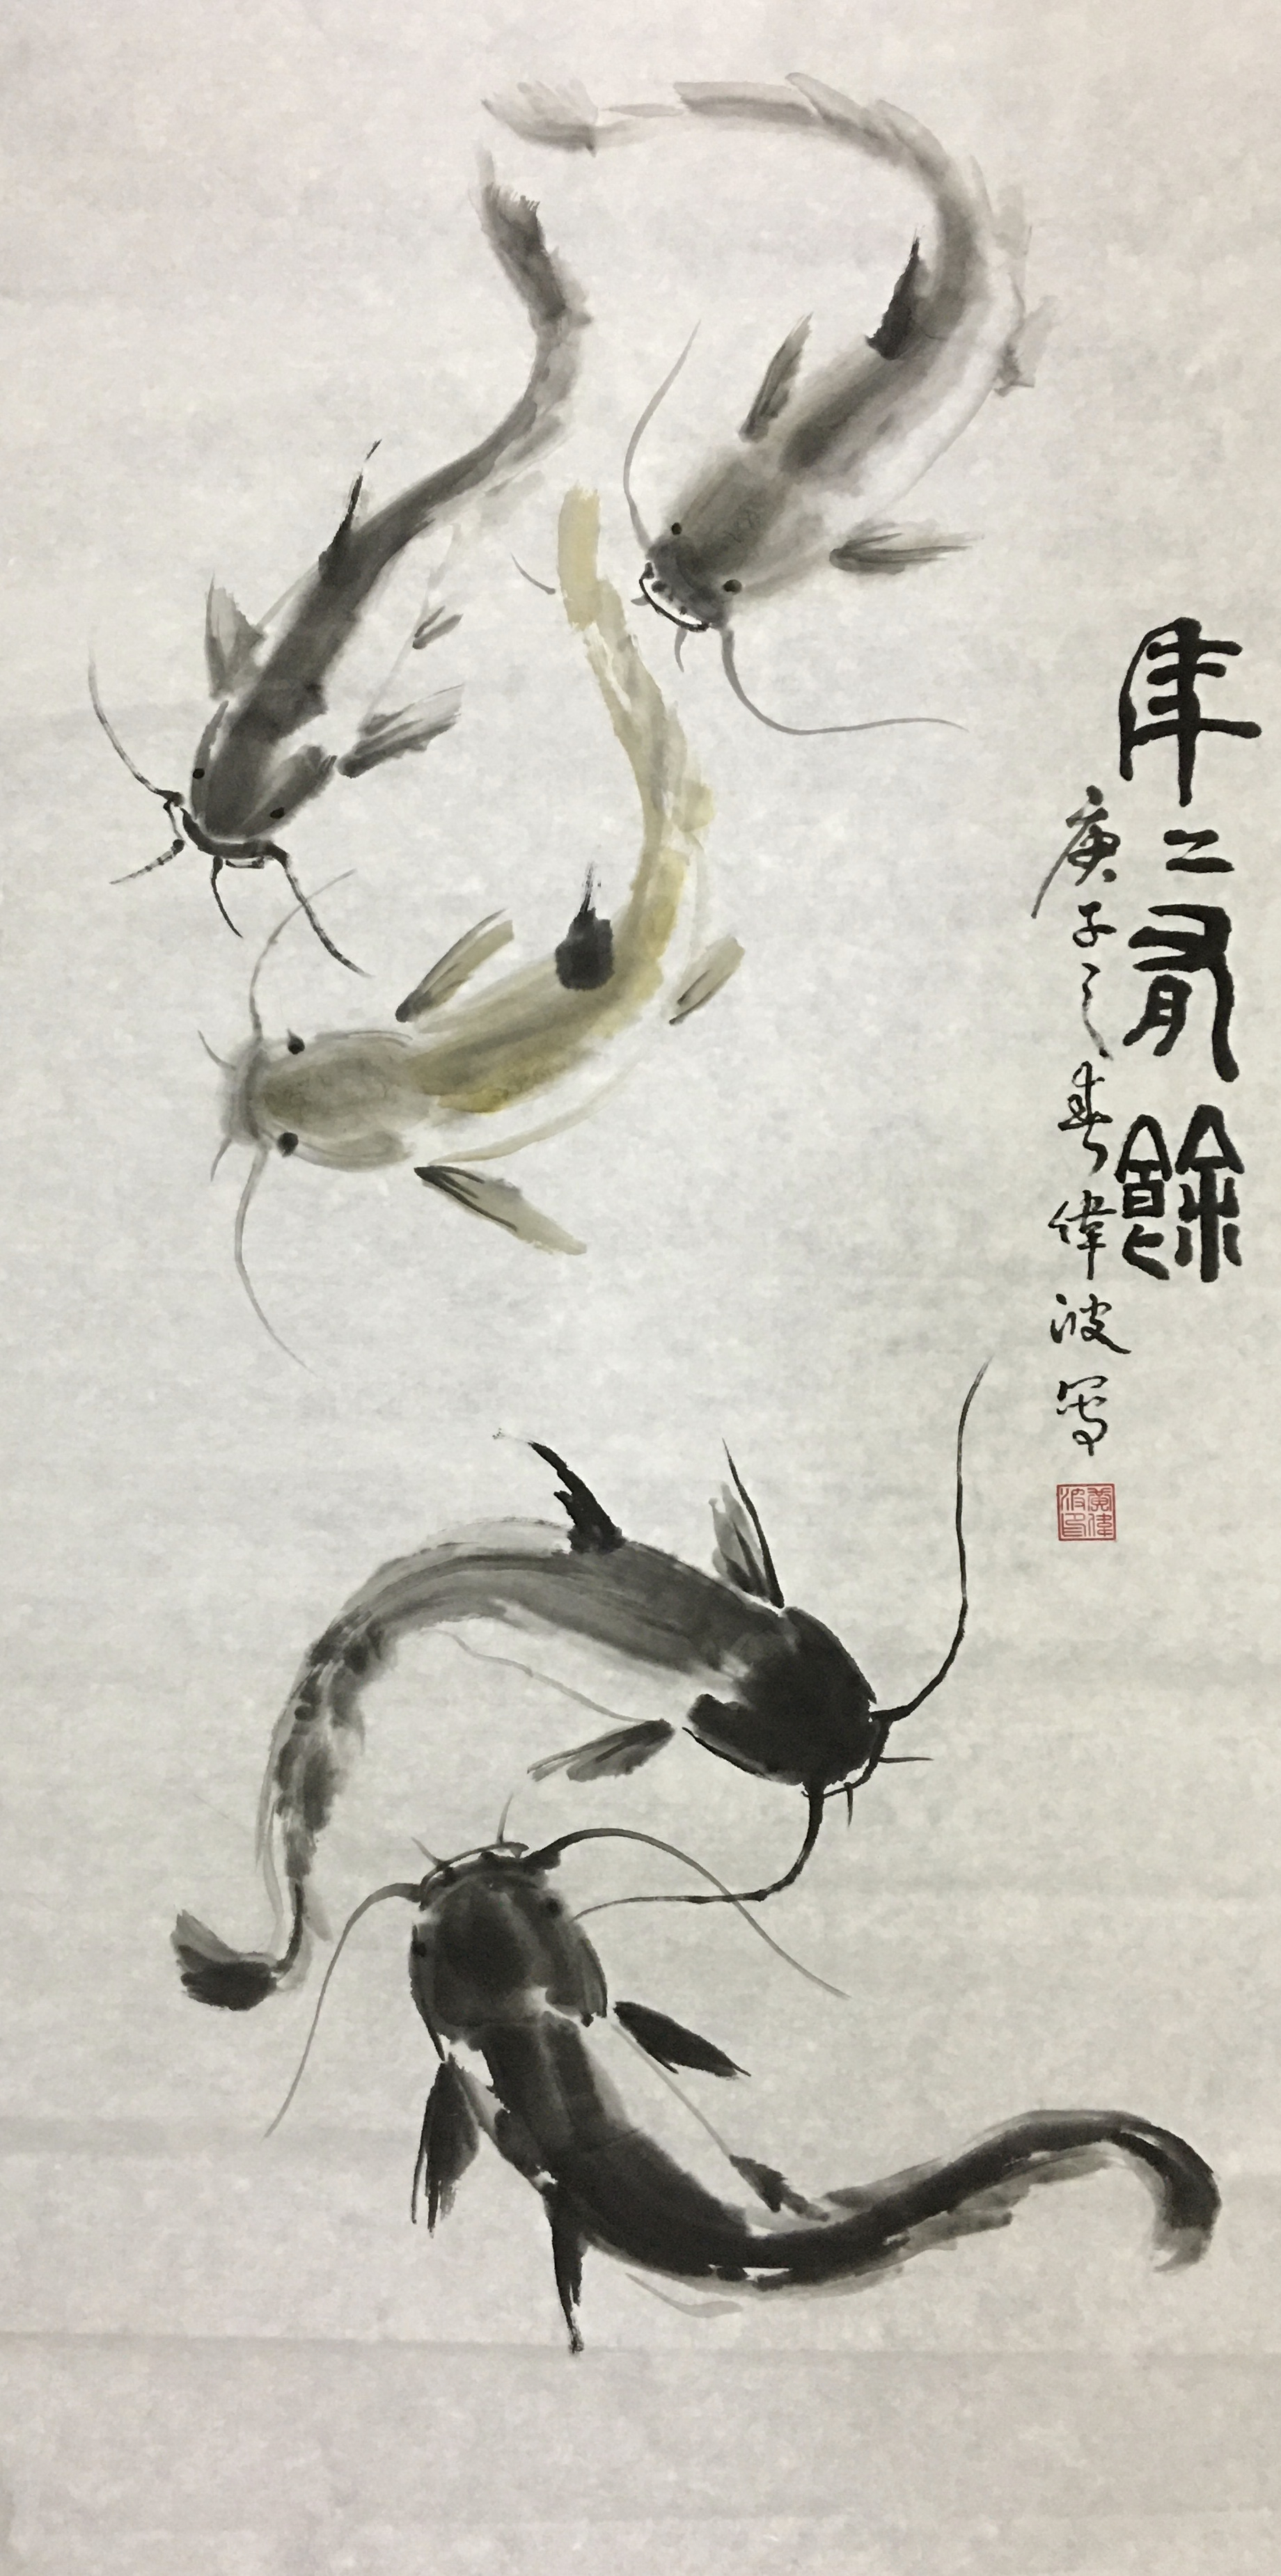 年二有餘
庚子之春偉波寫
黃偉波印